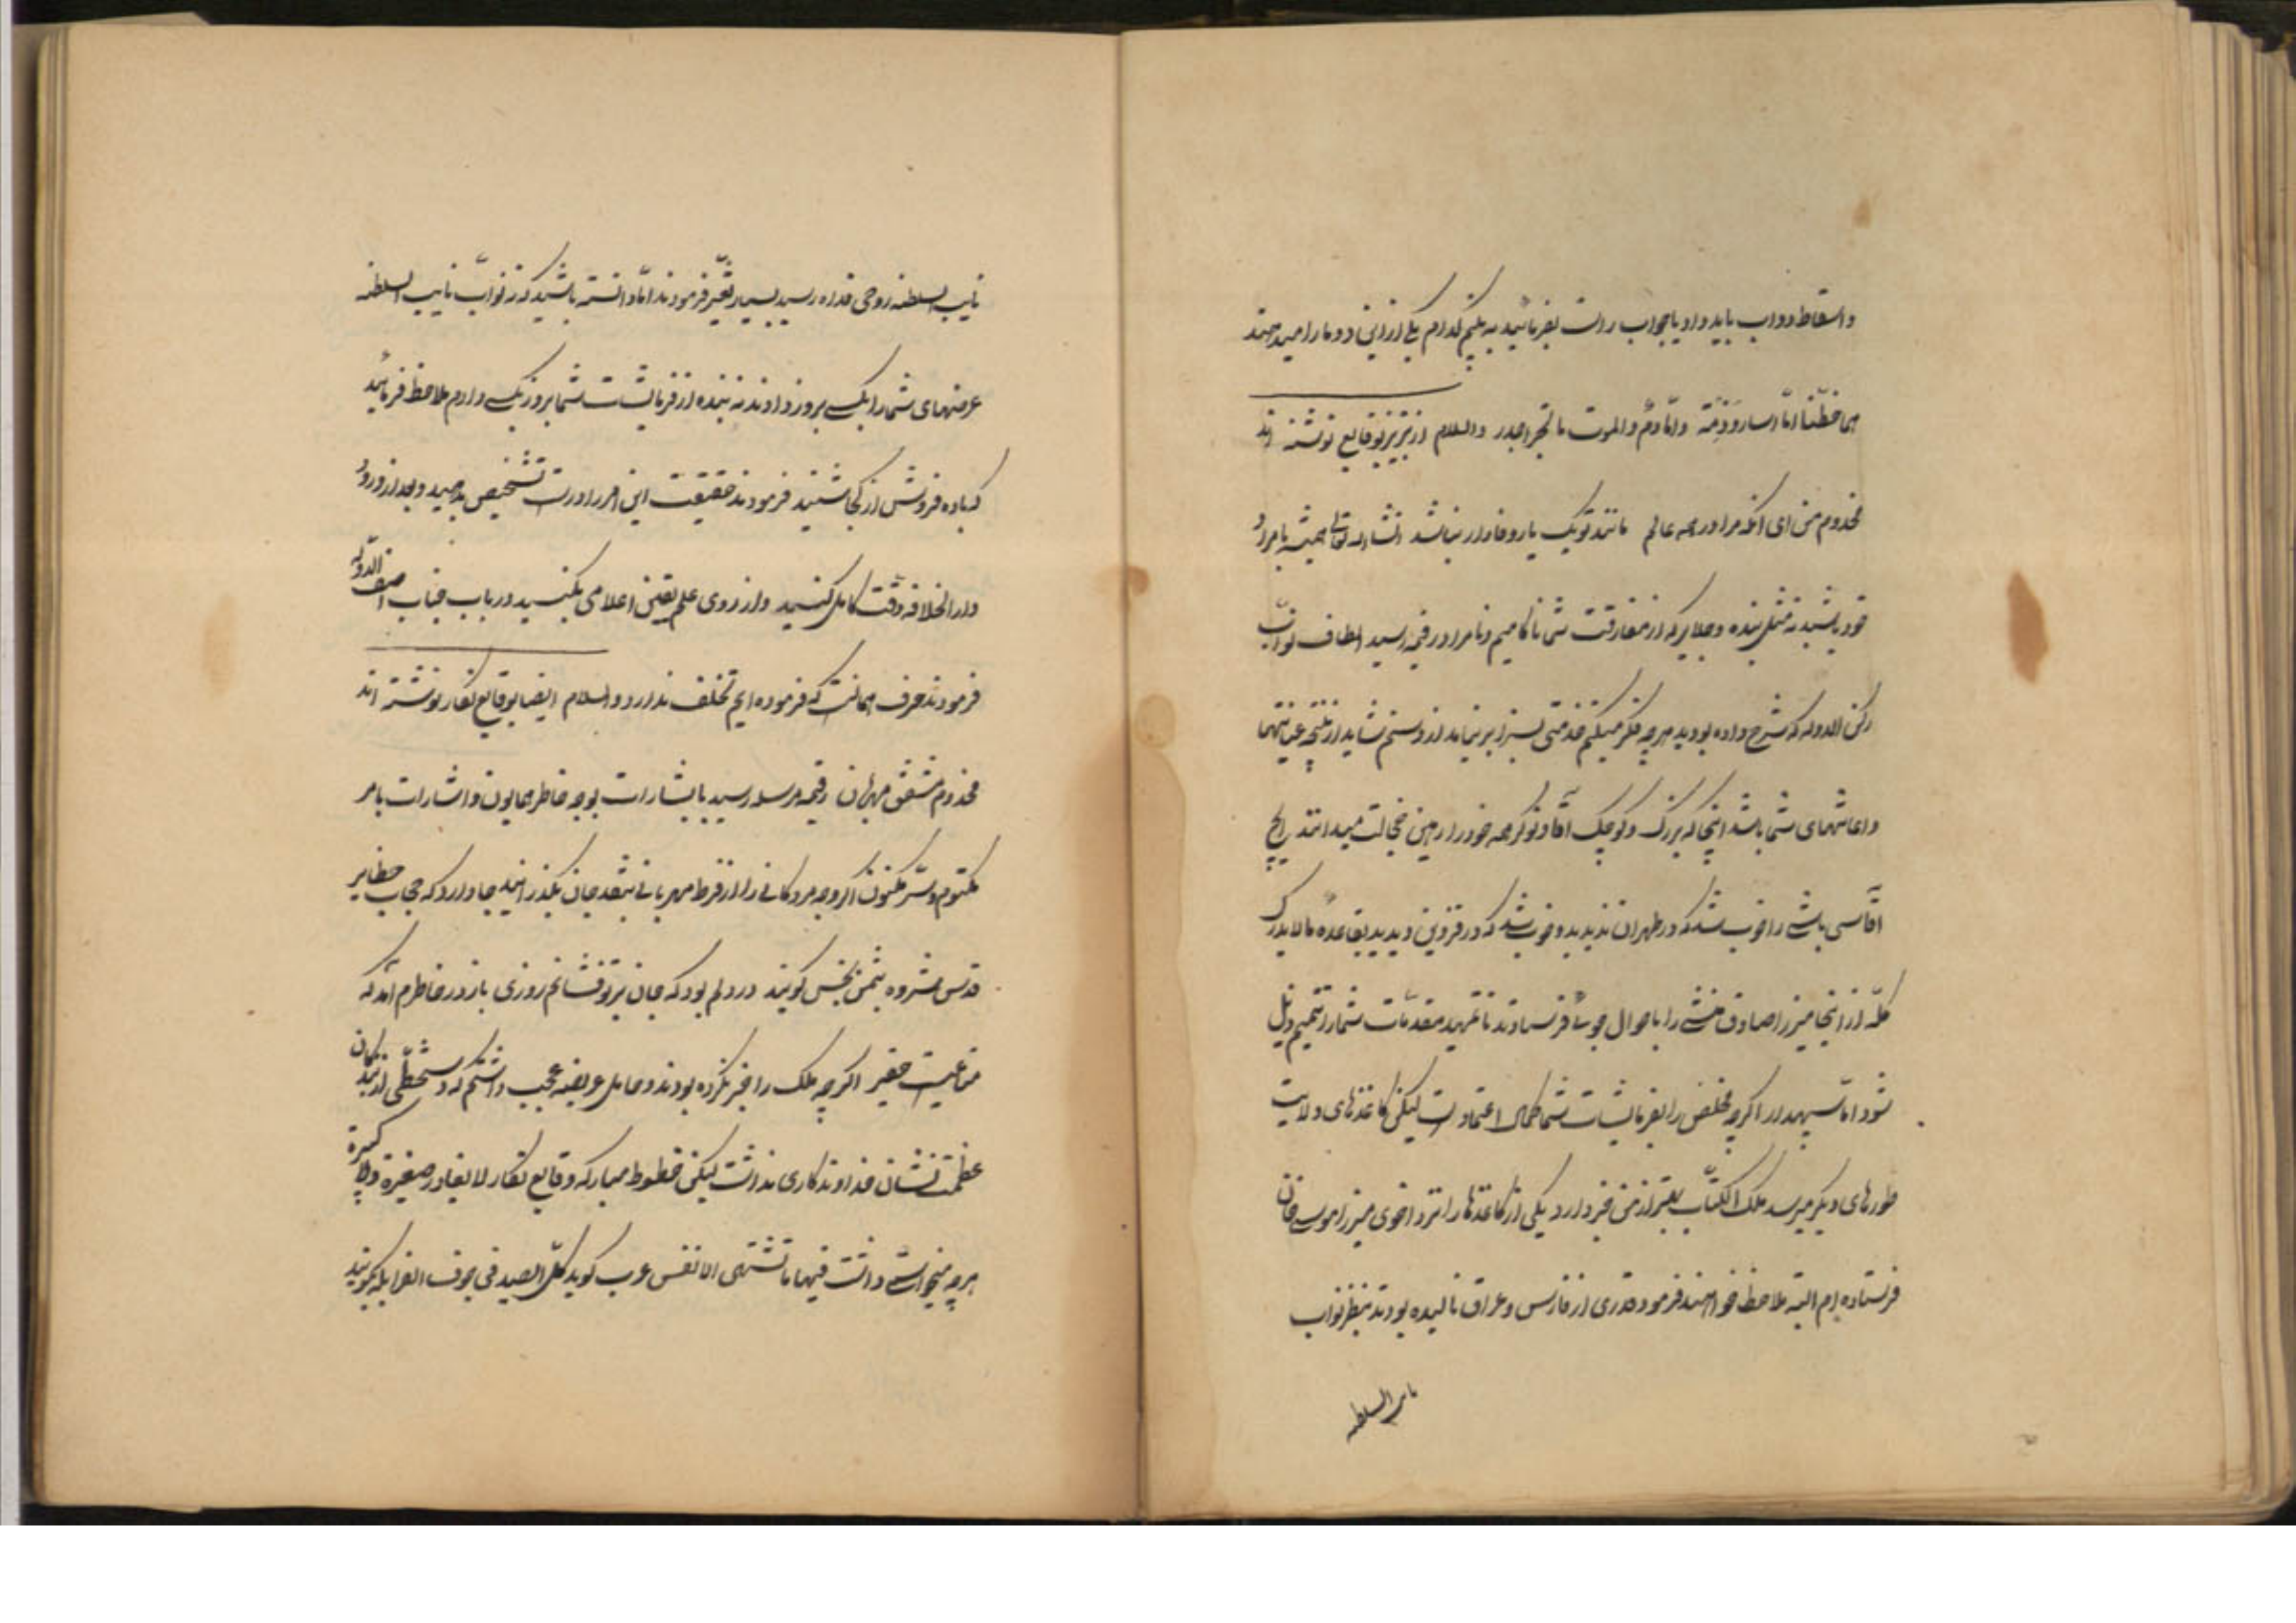 و اسقاط دواب باید داد یا جواب راست بفرمائید به بینیم کدام یکی ازاین دو ما را میدهند
هما خطّتا امّا اسار و منّة و امّا دم و الموت بالحرّ اجدر والسلام از تبریز بوقایع نوشته اند
مخدوم من ای آنکه مرا در همه عالم مانند تو یک یار وفادار نباشد انشاء الله تعالی همیشه بامراد
خود باشید نه مثل بنده و جلایر که از مفارقت شما ناکامیم و نامراد رقیمه رسید الطاف نواب
رکن الدوله که شرح داده بودید هرچه فکر میکنم خدمتی بسزا بر نیامد از دستم شاید از نتیجه عنایتهای
و اعانتهای شما باشد اینجا که بزرگ و کوچک آقا و نوکر همه خود را رهین خجالت میدانند ایلچی
آقاسی باشی را خوب شد که در طهران ندیدید و خوب شد که در قزوین دیدید بقاعده مالایدرک
کلّه از اینجا میرزا صادق منشی را با جوال جوال فرستادند تا تمهید مقدّمات شما را تتمیم و ذیل
شود امّا سپهدار اگرچه مخلص را بفرمایشات شما کمال اعتماد است لیکن کاغذهای ولایت
طورهای دیگر میرسد ملک الکتّاب بهتر از من خبر دارد یکی از کاغذها را نزد اخوی میرزا موسی خان
فرستاده ام البته ملاحظه خواهند فرمود قدری از فارس و عراق نالیده بودند بنظر نواب
نایب السلطنه
نایب السلطنه روحی فداه رسید بسیار تغیّر فرمودند امّا دانسته باشید که نواب نایب السلطنه
عرضهای شما را بکسی بروز دادند نه بنده از فرمایشات شما بروز بکسی دادم ملاحظه فرمائید
که باده فروش از کجا شنید فرمودند حقیقت این امر را درست تشخیص بدهید و بعد از ورود
دارالخلافه دقّت کامل کنید و از روی علم یقین اعلامی بکنید در باب جناب آصف الدّوله
فرمودند حرف همانست که فرموده ایم تخلف ندارد والسلام ایضا بوقایع نگار نوشته اند
مخدوم مشفق مهربان رقیمه مرسله رسید با بشارات توجه خاطر همایون و اشارات بامر
مکتوم و سرّ مکنون اگر وجه مردکانی را از فرط مهربانی بنقد جان بگذرانید جا دارد که حجاب حظایر
قدس مشروه بثمن بخس گویند در دلم بود که جان بر تو فشانم روزی باز در خاطرم آمد که
متاعیست حقیر اگرچه ملک را خبر نکرده بودند و حامل عریضه عجیب داشتم که دستخطّی از بندگان
عظمت نشان خداوندگاری نداشت لیکن خطوط مبارکه وقایع نگار لایغادر صغیرة ولا کبیرة
هرچه میخواست داشت فیها ما تشتهی الانفس عرب گوید کلّ الصید فی جوف الفرا بلکه گویند